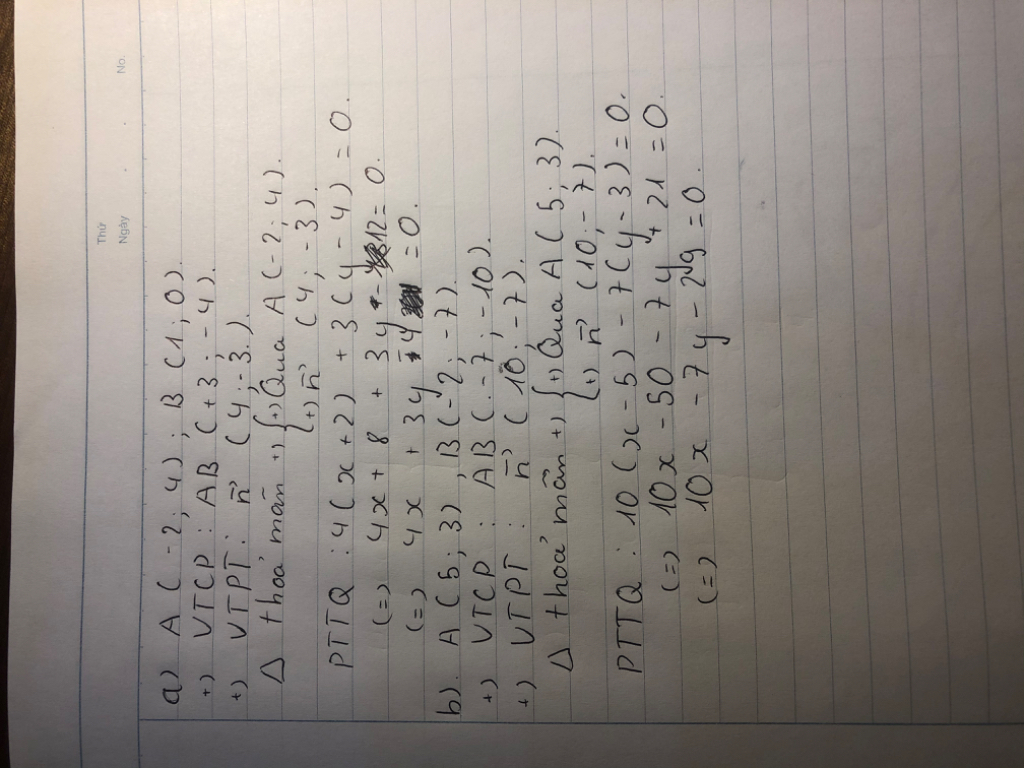 Thứ
Ngày . No.
a) A (-2; 4); B (1; 0).
+) VTCP: AB (+3; -4).
+) VTPT: n⃗ (4; -3).
Δ thoả mãn +) { +) Qua A (-2; 4).
+) n⃗ (4; -3).
PTTQ : 4(x+2) + 3(y - 4) = 0.
(=) 4x + 8 + 3y - 12 = 0.
(=) 4x + 3y - 4 = 0.
b). A (5; 3), B (-2; -7).
+) VTCP : AB (-7; -10).
+) VTPT : n⃗ (10; -7).
Δ thoả mãn +) { +) Qua A (5; 3).
+) n⃗ (10; -7).
PTTQ : 10 (x - 5) - 7 (y - 3) = 0.
(=) 10x - 50 - 7y + 21 = 0.
(=) 10x - 7y - 29 = 0.